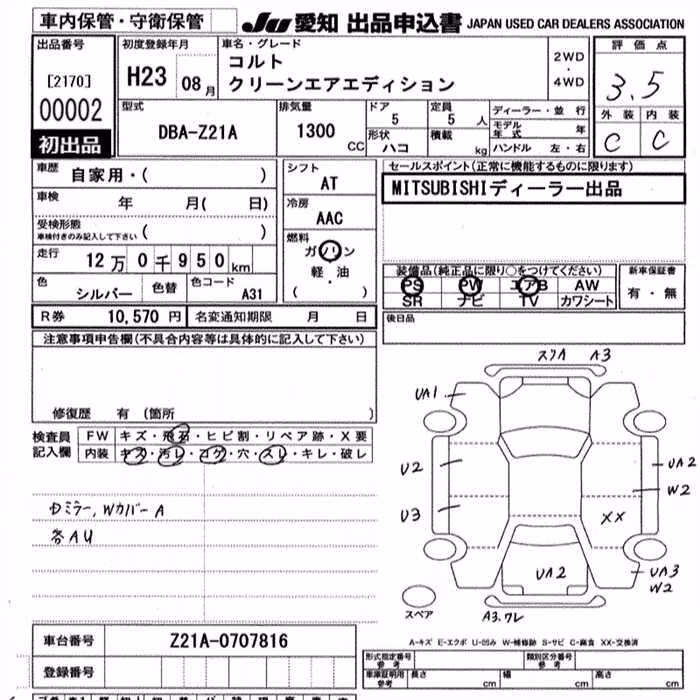 車内保管・守衛保管
JU 愛知 出品申込書 JAPAN USED CAR DEALERS ASSOCIATION
出品番号
[2170]
00002
初出品
初度登録年月
H23 08月
車名・グレード
コルト
クリーンエアエディション
2WD
・
4WD
評価点
3.5
外装 内装
C C
型式
DBA-Z21A
排気量
1300 CC
ドア
5
定員
5 人
形状
ハコ
積載
kg
ディーラー・並行
モデル年式 年
ハンドル 左・右
車歴
自家用・( )
車検
年 月( 日)
受検形態
車検付きのみ記入して下さい ( )
走行
12万0千950km
色
シルバー
色替
色コード
A31
シフト
AT
冷房
AAC
燃料
ガソリン
軽・油
・
( )
セールスポイント(正常に機能するものに限ります)
MITSUBISHIディーラー出品
装備品(純正品に限り○をつけてください)
PS PW エアB AW
SR ナビ TV カワシート
新車保証書
有・無
後日品
R券 10,570 円 名変通知期限 月 日
注意事項申告欄(不具合内容等は具体的に記入して下さい)
修復歴 有 (箇所 )
検査員
記入欄
FW キズ・飛石・ヒビ割・リペア跡・X要
内装 キズ・汚レ・コゲ・穴・スレ・キレ・破レ
Dミラー,Wカバー A
各AU
スリA A3
UA1
U2
U3
UA2
W2
XX
UA2
UA3
W2
A3.ワレ
スペア
A-キズ E-エクボ U-凹み W-補修跡 S-サビ C-腐食 XX-交換済
車台番号 Z21A-0707816
登録番号
形式指定番号
参考
類別区分番号
参考
車庫証明用
参考
長さ cm 幅 cm 高さ cm